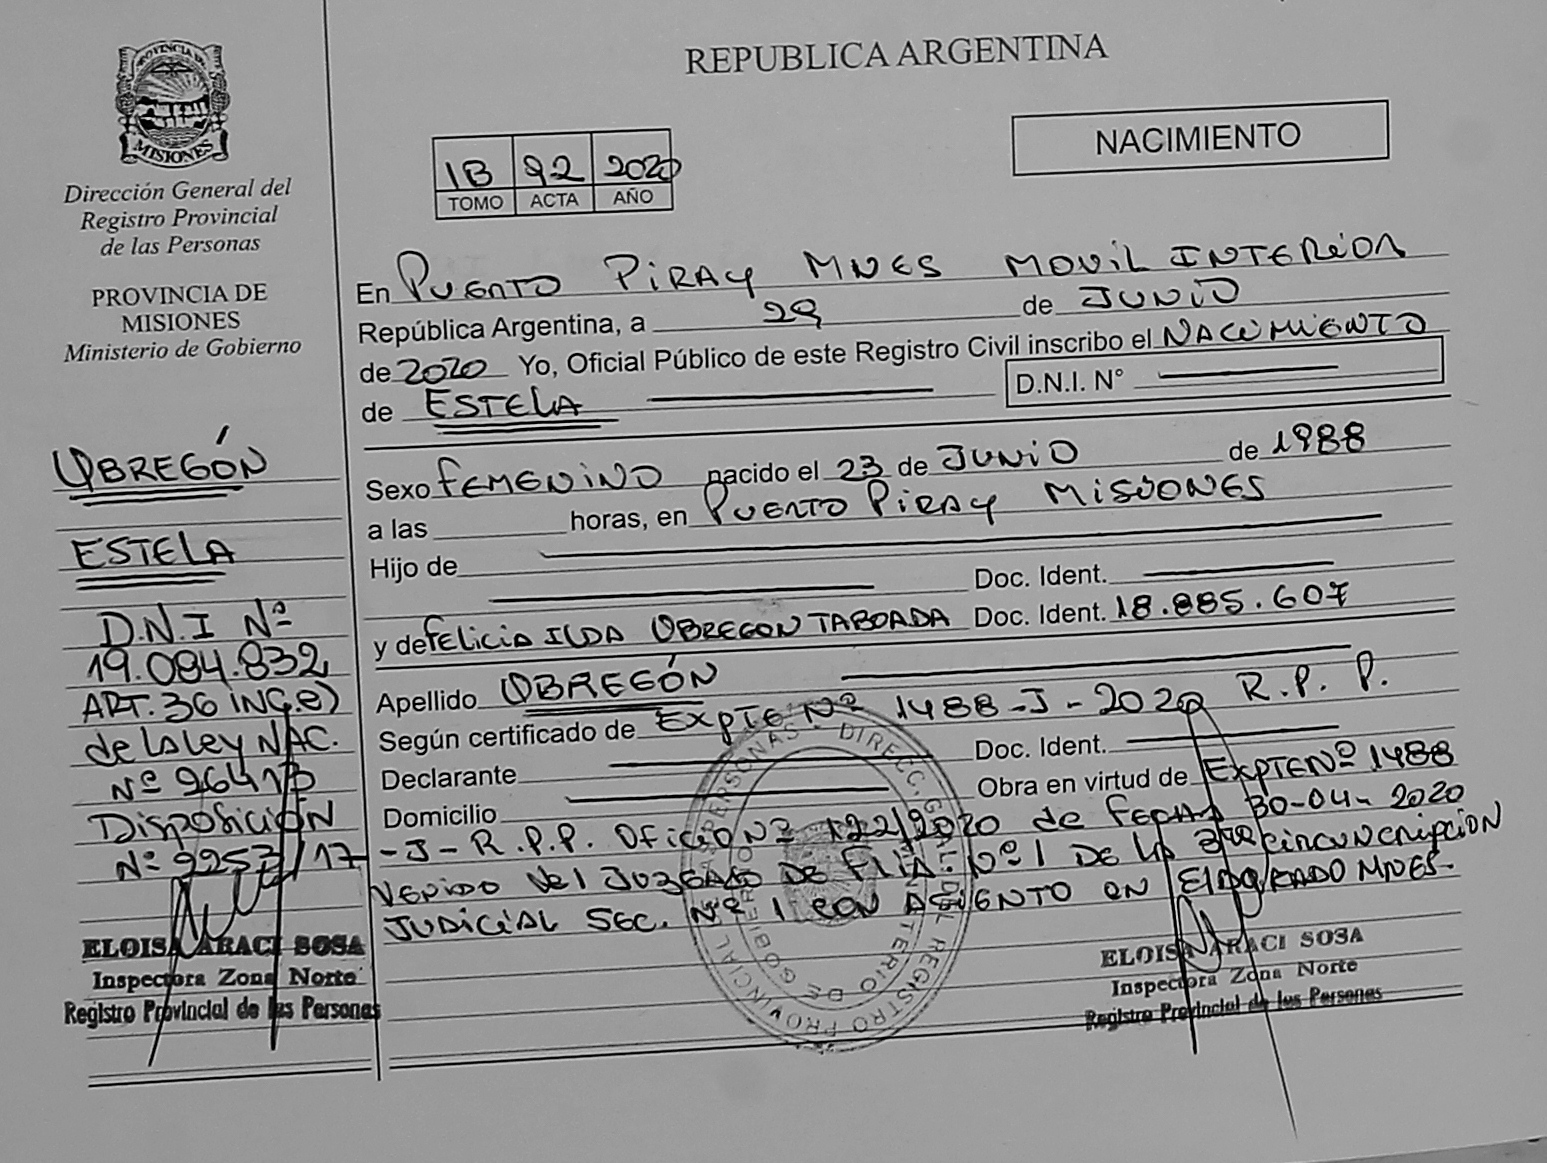 REPUBLICA ARGENTINA
PROVINCIA DE
MISIONES
Dirección General del
Registro Provincial
de las Personas
PROVINCIA DE
MISIONES
Ministerio de Gobierno
NACIMIENTO
1B 92 2020
TOMO ACTA AÑO
En PUERTO PIRAY MNES MOVIL INTERIOR
República Argentina, a 29 de JUNIO
de 2020 Yo, Oficial Público de este Registro Civil inscribo el NACIMIENTO
de ESTELA D.N.I. N°
Sexo FEMENINO nacido el 23 de JUNIO de 1988
a las horas, en PUERTO PIRAY MISIONES
Hijo de
Doc. Ident.
y de FELICIA ILDA OBREGON TABOADA Doc. Ident. 18.885.607
Apellido OBREGÓN
Según certificado de EXPTE Nº 1488-J-2020 R.P.P.
Declarante Doc. Ident.
Domicilio Obra en virtud de EXPTE Nº 1488
-J-R.P.P. OFICIO Nº 122/2020 de FECHA 30-04-2020
VENIDO DEL JUZGADO DE FLIA. Nº 1 DE LA 3ra CIRCUNCRIPCION
JUDICIAL SEC. Nº 1 CON ASIENTO EN ELDORADO MNES-
OBREGÓN
ESTELA
D.N.I Nº
19.084.832
ART. 36 INC. e)
de la ley NAC.
Nº 26413
DISPOSICIÓN
Nº 2257/17
ELOISA ARACI SOSA
Inspectora Zona Norte
Registro Provincial de las Personas
ELOISA ARACI SOSA
Inspectora Zona Norte
Registro Provincial de las Personas
DIRECC. GRAL. DEL REGISTRO PROVINCIAL DE LAS PERSONAS
MINISTERIO DE GOBIERNO